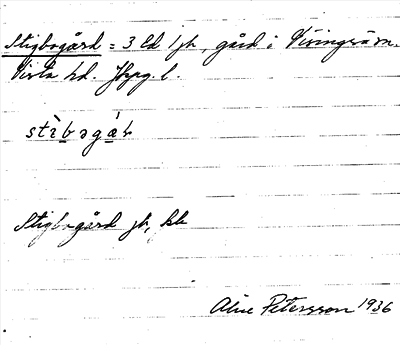 Stigbogård = 3 Ld 1 jb, gård i Visingsö sn.
Vista hd. Jkpg. l.
stìbogár
Stigbogård jb, kk
Aline Petersson 1936